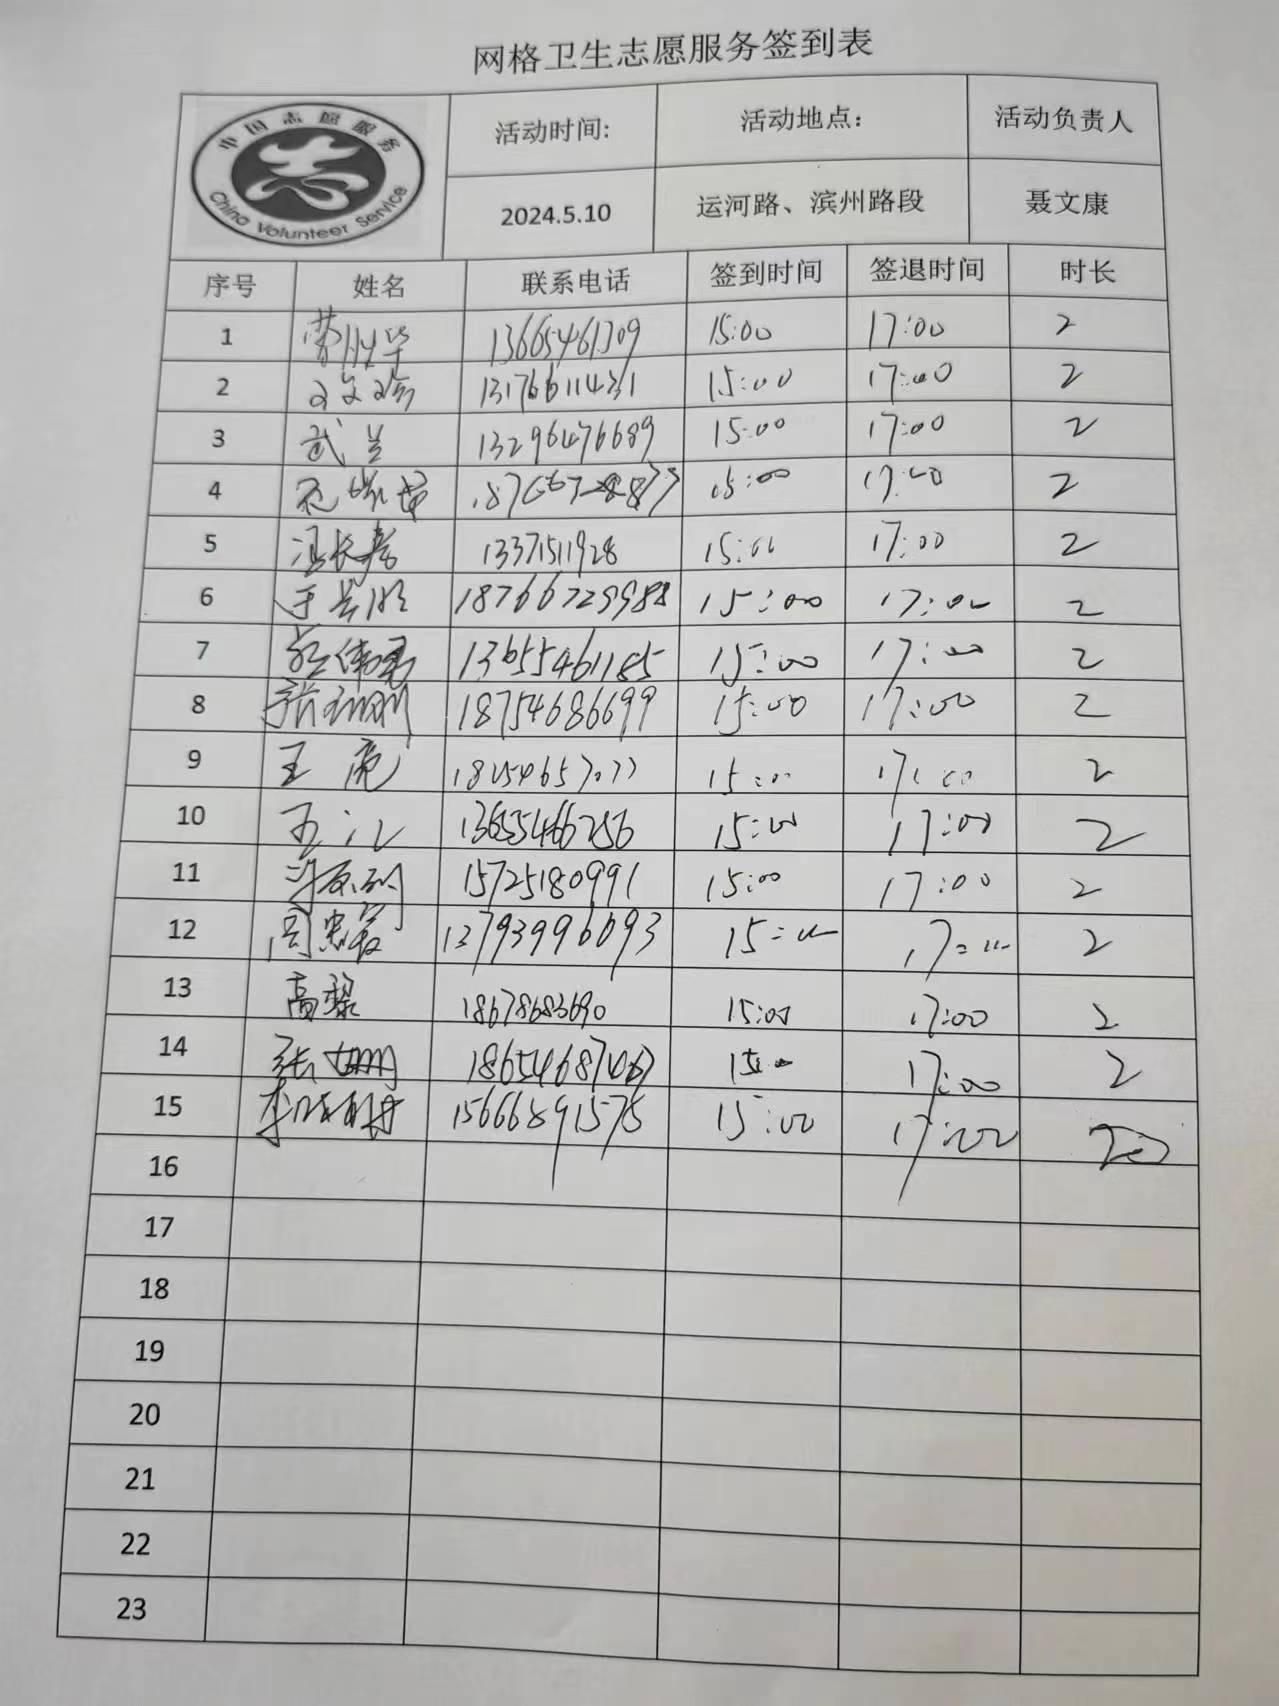 网格卫生志愿服务签到表
中国志愿服务
China Volunteer Service
活动时间: 活动地点： 活动负责人
2024.5.10 运河路、滨州路段 聂文康
序号 姓名 联系电话 签到时间 签退时间 时长
1 13665461309 15:00 17:00 2
2 13176611431 15:00 17:00 2
3 武兰 13296476689 15:00 17:00 2
4 15:00 17:00 2
5 13371511928 15:00 17:00 2
6 18766729988 15:00 17:00 2
7 13655461185 15:00 17:00 2
8 18754686699 15:00 17:00 2
9 王亮 15:00 17:00 2
10 13655466256 15:00 17:00 2
11 15725180991 15:00 17:00 2
12 13793996093 15:00 17:00 2
13 高黎 18678683690 15:00 17:00 2
14 15:00 17:00 2
15 15666891575 15:00 17:00 2
16
17
18
19
20
21
22
23